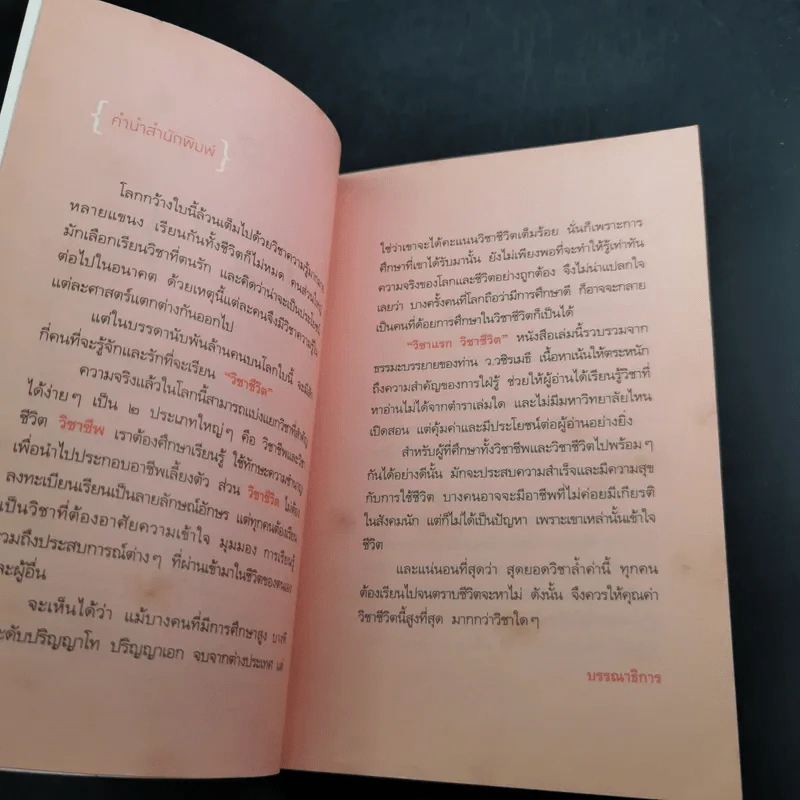 { คำนำสำนักพิมพ์ }
โลกกว้างใบนี้ล้วนเต็มไปด้วยวิชาความรู้มากมาย
หลายแขนง เรียนกันทั้งชีวิตก็ไม่หมด คนส่วนใหญ่
มักเลือกเรียนวิชาที่ตนรัก และคิดว่าน่าจะเป็นประโยชน์
ต่อไปในอนาคต ด้วยเหตุนี้แต่ละคนจึงมีวิชาความรู้ใน
แต่ละศาสตร์แตกต่างกันออกไป
แต่ในบรรดานับพันล้านคนบนโลกใบนี้ จะมีสัก
กี่คนที่จะรู้จักและรักที่จะเรียน "วิชาชีวิต"
ความจริงแล้วในโลกนี้สามารถแบ่งแยกวิชาที่สำคัญ
ได้ง่ายๆ เป็น ๒ ประเภทใหญ่ๆ คือ วิชาชีพและวิชา
ชีวิต วิชาชีพ เราต้องศึกษาเรียนรู้ ใช้ทักษะความชำนาญ
เพื่อนำไปประกอบอาชีพเลี้ยงตัว ส่วน วิชาชีวิต ไม่ต้อง
ลงทะเบียนเรียนเป็นลายลักษณ์อักษร แต่ทุกคนต้องเรียน
เป็นวิชาที่ต้องอาศัยความเข้าใจ มุมมอง การเรียนรู้
รวมถึงประสบการณ์ต่างๆ ที่ผ่านเข้ามาในชีวิตของตนเอง
และผู้อื่น
จะเห็นได้ว่า แม้บางคนที่มีการศึกษาสูง บางที
ระดับปริญญาโท ปริญญาเอก จบจากต่างประเทศ แต่
ใช่ว่าเขาจะได้คะแนนวิชาชีวิตเต็มร้อย นั่นก็เพราะการ
ศึกษาที่เขาได้รับมานั้น ยังไม่เพียงพอที่จะทำให้รู้เท่าทัน
ความจริงของโลกและชีวิตอย่างถูกต้อง จึงไม่น่าแปลกใจ
เลยว่า บางครั้งคนที่โลกถือว่ามีการศึกษาดี ก็อาจจะกลาย
เป็นคนที่ด้อยการศึกษาในวิชาชีวิตก็เป็นได้
"วิชาแรก วิชาชีวิต" หนังสือเล่มนี้รวบรวมจาก
ธรรมะบรรยายของท่าน ว.วชิรเมธี เนื้อหาเน้นให้ตระหนัก
ถึงความสำคัญของการใฝ่รู้ ช่วยให้ผู้อ่านได้เรียนรู้วิชาที่
หาอ่านไม่ได้จากตำราเล่มใด และไม่มีมหาวิทยาลัยไหน
เปิดสอน แต่คุ้มค่าและมีประโยชน์ต่อผู้อ่านอย่างยิ่ง
สำหรับผู้ที่ศึกษาทั้งวิชาชีพและวิชาชีวิตไปพร้อมๆ
กันได้อย่างดีนั้น มักจะประสบความสำเร็จและมีความสุข
กับการใช้ชีวิต บางคนอาจจะมีอาชีพที่ไม่ค่อยมีเกียรติ
ในสังคมนัก แต่ก็ไม่ได้เป็นปัญหา เพราะเขาเหล่านั้นเข้าใจ
ชีวิต
และแน่นอนที่สุดว่า สุดยอดวิชาล้ำค่านี้ ทุกคน
ต้องเรียนไปจนตราบชีวิตจะหาไม่ ดังนั้น จึงควรให้คุณค่า
วิชาชีวิตนี้สูงที่สุด มากกว่าวิชาใดๆ
บรรณาธิการ